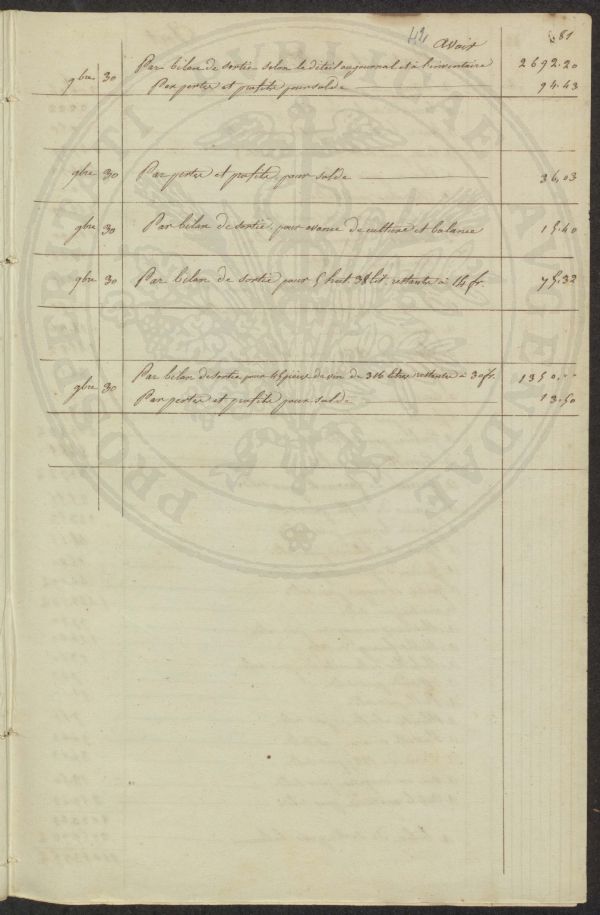 42
Avoir
81
9bre 30 Par bilan de sortie selon le détail au journal et à l'inventaire 2692.20
Par pertes et profits pour solde 94.43
9bre 30 Par pertes et profits pour solde 36.03
9bre 30 Par bilan de sortie, pour avance de culture et balance 15.40
9bre 30 Par bilan de sortie pour 5 hect. 38 lit. restants à 14 fr. 75.32
9bre 30 Par bilan de sortie pour 45 pièces de vin de 316 litres restantes à 30 fr. 1350.
Par pertes et profits pour solde 13.50